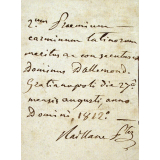 2um Praemium
carminum latinorum
meritus ac con secutus
Dominus Dallemond.
Gratianopoli die 27â
mensis augusti, anno
Domini, 1812.